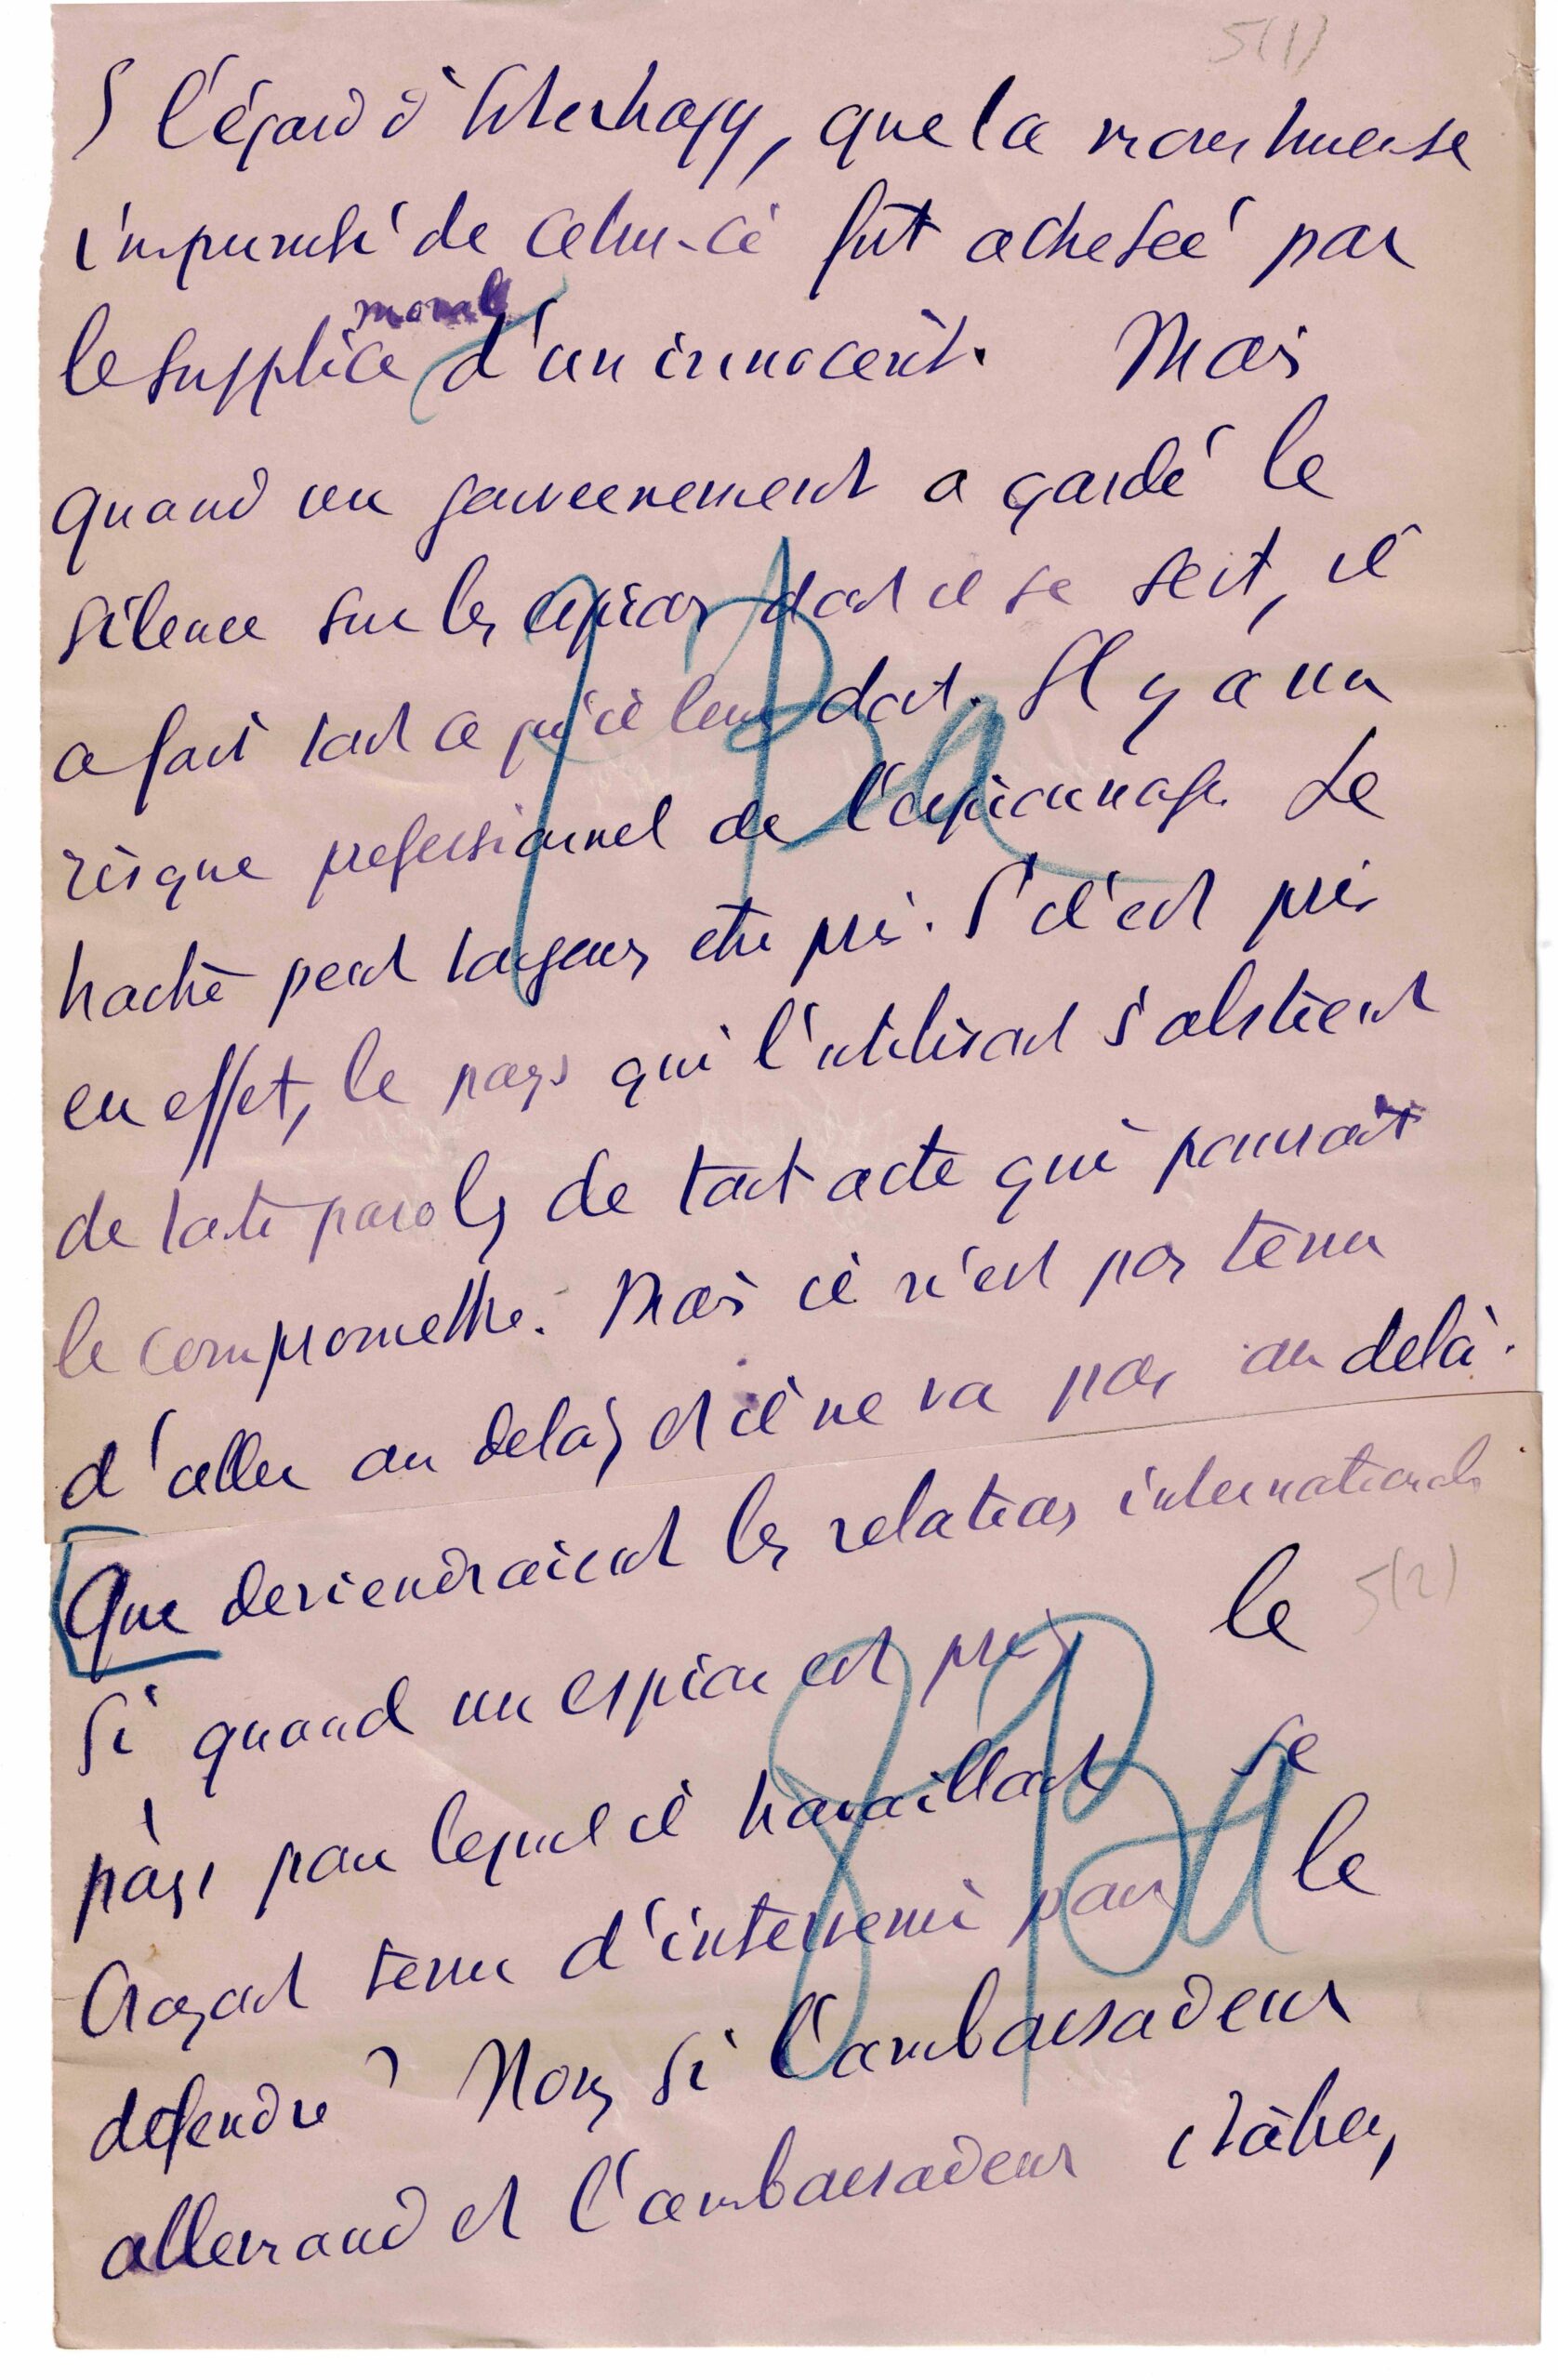 5(1)
5 l'égard d'Esterhazy, que la monstrueuse
impunité de celui-ci fût achetée par
le supplice moral d'un innocent. Mais
quand un gouvernement a gardé le
silence sur les espions dont il se sert, il
a fait tout ce qu'il leur doit. Il y a un
risque professionnel de l'espionnage. Le
traître peut toujours être pris. S'il est pris
en effet, le pays qui l'utilisait s'abstient
de toute parole, de tout acte qui pourrait
le compromettre. Mais il n'est pas tenu
d'aller au delà, et il ne va pas au delà.
Que deviendraient les relations internationales
5(2)
si quand un espion est pris, le
pays pour lequel il travaillait se
croyait tenu d'intervenir pour le
défendre ? Non, si l'ambassadeur
allemand et l'ambassadeur italien,